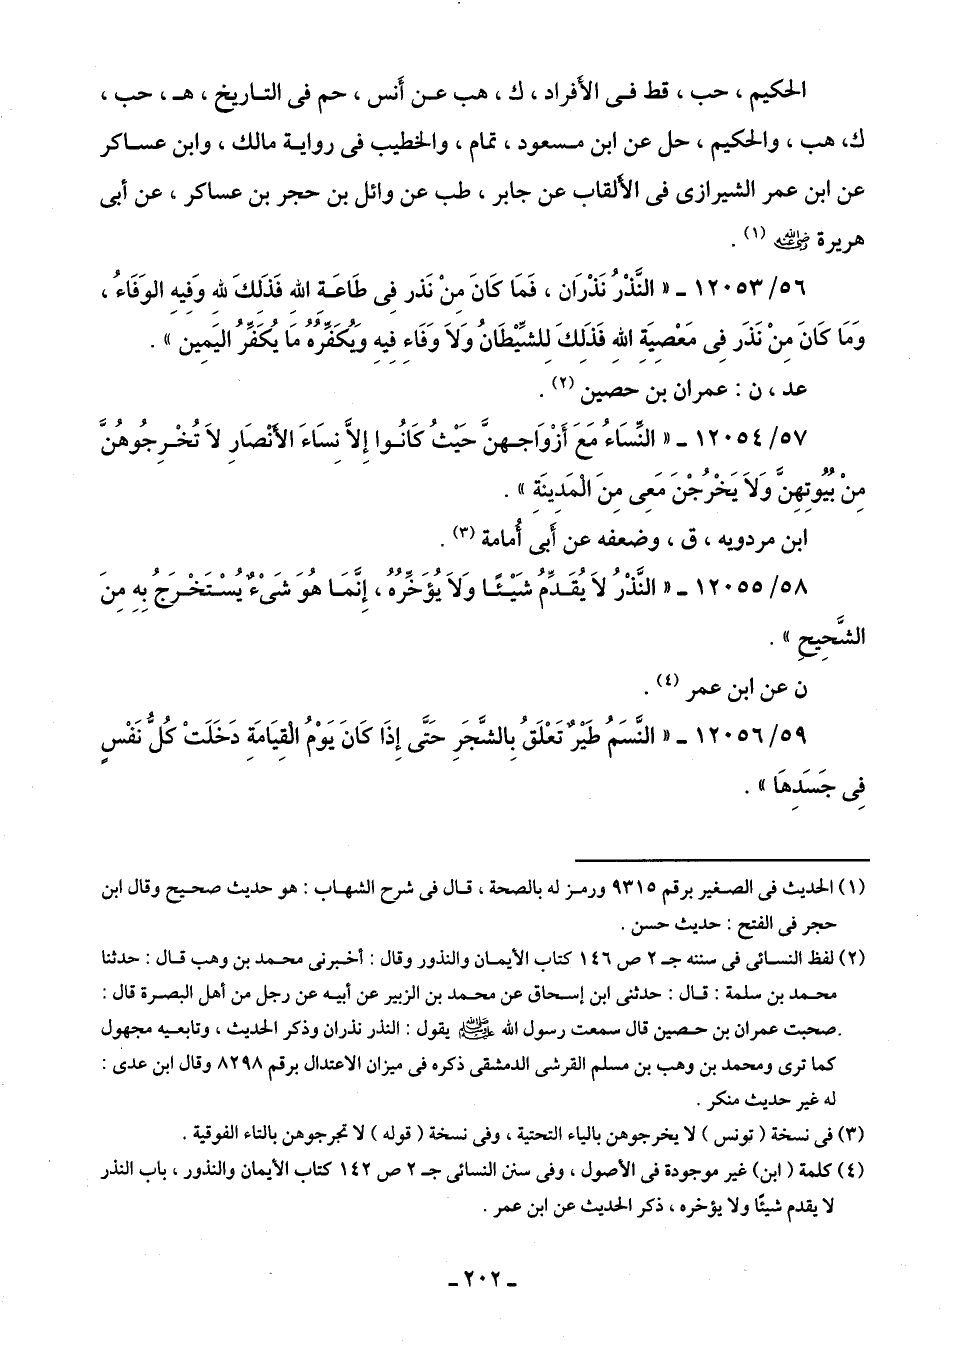 الحكيم ، حب ، قط فـى الأفراد ، ك ، هب عـن أنس ، حم فى التـاريخ ، هـ ، حب ،
ك، هب ، والحكيم ، حل عن ابن مـسعود ، تمام ، والخطيب فى روايـة مالك ، وابن عسـاكر
عن ابن عمر الشيرازى فى الألقاب عن جابر ، طب عن وائل بن حجر بن عساكر ، عن أبى
هريرة رضي الله عنه (١) .
١٢٠٥٣/٥٦ ـ « النَّذْرُ نَذْرَان ، فَمَا كَانَ مِنْ نَذر فِى طَاعَـةِ اللهِ فَذَلِكَ للهِ وَفِيهِ الوَفَاءُ ،
وَمَا كَانَ مِنْ نَذَر فِى مَعْصِيَةِ اللهِ فَذَلِكَ لِلشَّيْطَانُ وَلاَ وَفَاءِ فِيهِ وَيُكَفِّرُهُ مَا يُكَفِّرُ اليَمِين » .
عد ، ن : عمران بن حصين (٢) .
١٢٠٥٤/٥٧ ـ « النِّسَاءُ مَعَ أَزْوَاجِـهِنَّ حَيْثُ كَانُـوا إِلاَّ نِسَاءَ الأَنْصَارِ لاَ تُخْـرِجُوهُنَّ
مِنْ بُيُوتِهِنَّ وَلاَ يَخْرُجْنَ مَعِى مِنَ الْمَدِينَةِ » .
ابن مردويه ، ق ، وضعفه عن أَبى أُمامة (٣) .
١٢٠٥٥/٥٨ ـ « النَّذْرُ لاَ يُقَـدِّمُ شَيْـئًـا وَلاَ يُؤَخِّرُهُ ، إِنَّمَـا هُوَ شَىْءٌ يُسْتَخْـرَجُ بِهِ مِنَ
الشَّحِيحِ » .
ن عن ابن عمر (٤) .
١٢٠٥٦/٥٩ ـ « النَّسَمُ طَيْرٌ تَعْلَقُ بِالشَّجَرِ حَتَّى إِذَا كَانَ يَوْمُ الْقِيَامَةِ دَخَلَتْ كُلُّ نَفْسٍ
فِى جَسَدِهَا » .
(١) الحديث فى الصغير برقم ٩٣١٥ ورمـز له بالصحة ، قـال فى شرح الشهاب : هو حديث صحيح وقال ابن
حجر فى الفتح : حديث حسن .
(٢) لفظ النسـائى فى سننه جـ ٢ ص ١٤٦ كتاب الأيمـان والنذور وقال : أخبرنى محـمد بن وهب قـال : حدثنا
محـمد بن سلمة : قـال : حدثنى ابن إسـحاق عن محـمد بن الزبير عن أبيـه عن رجل من أهل البصـرة قال :
صحبت عمران بن حـصين قال سمعت رسول الله صلى الله عليه وسلم يقول : النذر نذران وذكر الحديث ، وتابعيـه مجهول
كما ترى ومحمد بن وهب بن مسلم القرشى الدمشقى ذكره فى ميزان الاعتدال برقم ٨٢٩٨ وقال ابن عدى :
له غير حديث منكر .
(٣) فى نسخة ( تونس ) لا يخرجوهن بالياء التحتية ، وفى نسخة ( قوله ) لا تجرجوهن بالتاء الفوقية .
(٤) كلمة ( ابن) غير موجودة فى الأصول ، وفى سنن النسائى جـ ٢ ص ١٤٢ كتاب الأيمان والنذور ، باب النذر
لا يقدم شيئًا ولا يؤخره ، ذكر الحديث عن ابن عمر .
ـ ٢٠٢ ـ